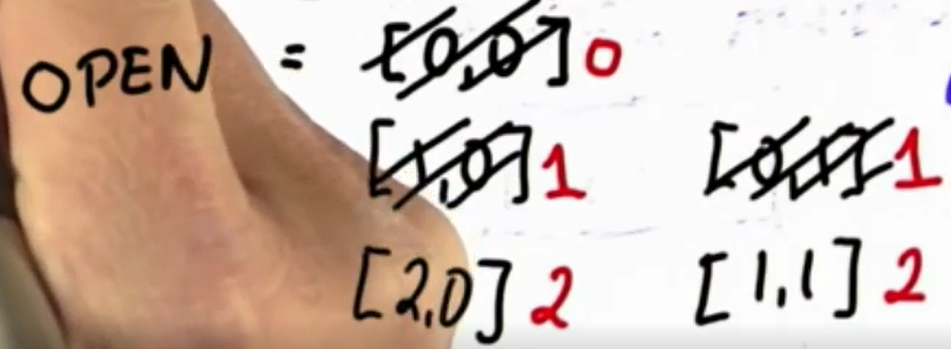 OPEN = [0,0] 0
[1,0] 1 [0,1] 1
[2,0] 2 [1,1] 2